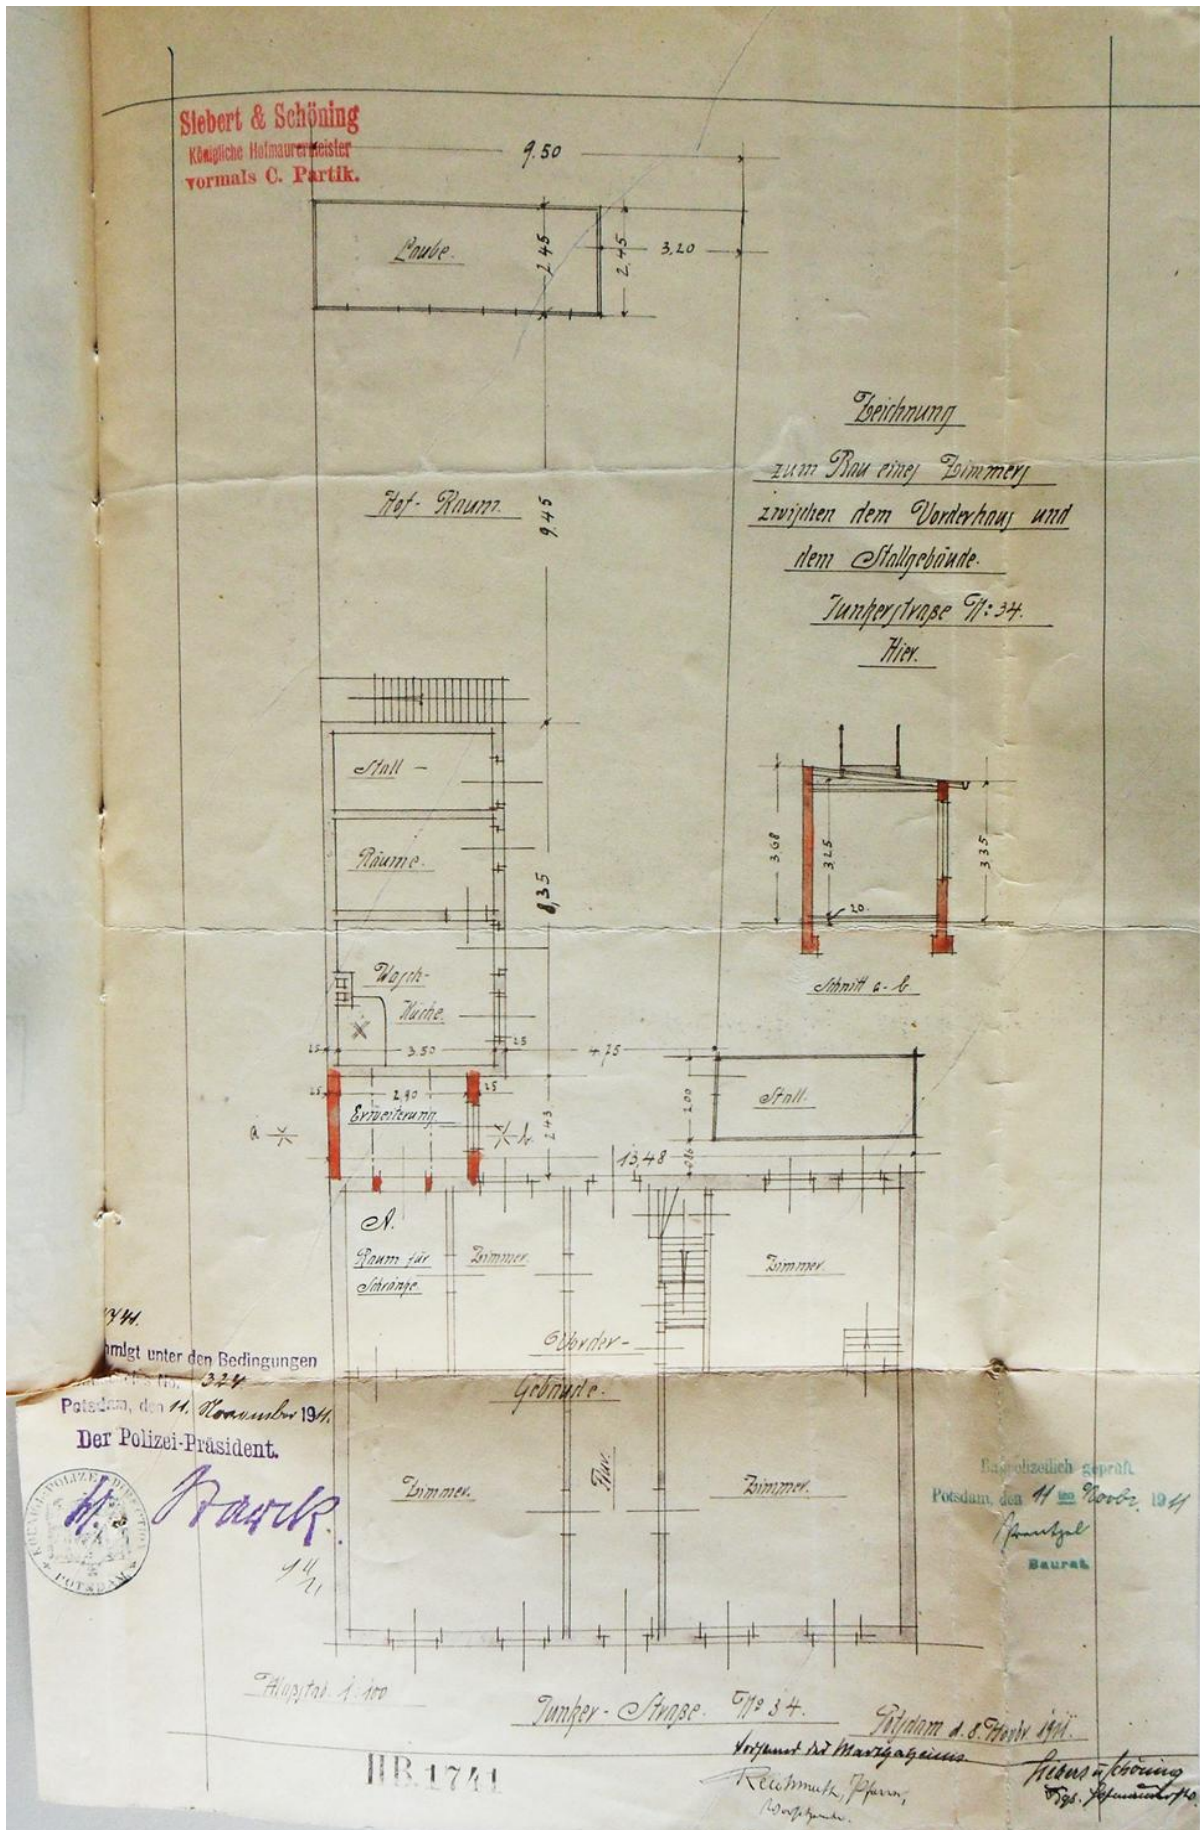 Siebert & Schöning
Königliche Hofmaurermeister
vormals C. Partik.
9.50
Laube.
2.45
2.45
3,20
Zeichnung
zum Bau eines Zimmers
zwischen dem Vorderhaus und
dem Stallgebäude.
Junkerstraße No: 34.
Hier.
Hof-Raum.
9.45
Stall-
Räume.
8,35
3,68
3.25
3.35
20.
Schnitt a-b.
Wasch-
Küche.
25
3.50
25
4.75
25
2,90
25
Erweiterung
a
b.
2.43
2.00
Stall.
13,48
A.
Raum für
Schränke
Zimmer.
Zimmer.
Vorder-
Gebäude.
Zimmer.
Flur.
Zimmer.
1741.
hmigt unter den Bedingungen
No. 324
Potsdam, den 11. November 1911.
Der Polizei-Präsident.
KOENIGL. POLIZEI-DIREKTION
POTSDAM
Baupolizeilich geprüft.
Potsdam, den 11 ten Novbr. 1911
Baurat.
Maßstab. 1:100
Junker-Straße. No 34.
Potsdam d. 8. Novbr. 1911.
Vorstand des
Reichmuth, Pfarrer,
Vorsitzender.
Siebert u Schöning
Kgl. Hofmaurermstr.
IIB.1741